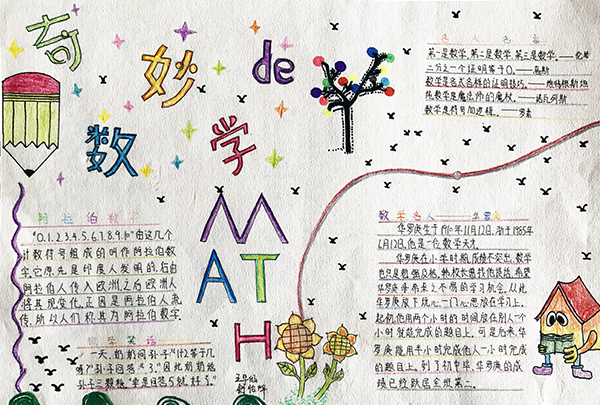 奇妙de
数学
MATH
名人名言
第一是数学,第二是数学,第三是数学。——伦琴
二分之一个证明等于0。——高斯
数学是各式各样的证明技巧。——维特根斯坦
纯数学是魔法师的魔杖。——诺瓦列斯
数学是符号加逻辑。——罗素
阿拉伯数字
"0.1.2.3.4.5.6.7.8.9.10"由这几个
计数符号组成的叫作阿拉伯数
字。它原先是印度人发明的,后由
阿拉伯人传入欧洲,之后欧洲人
将其现变化。正因是阿拉伯人流
传,所以人们称其为阿拉伯数字。
数学笑话
一天,奶奶问孙子:"1+2等于几
呀?"孙子回答:"3。"因此奶奶给
孙子三颗糖,"要是回答5就好了。"
数学名人——华罗庚
华罗庚生于1910年11月12日,卒于1985年
6月12日,他是一位数学天才。
华罗庚在小学时期,成绩不突出,数学
也只是勉强及格,
华罗庚放下玩心,一门心思放在学习上。
起初,他用两个小时的时间放在别人一个
小时就能完成的题目上,可是后来,华
罗庚能用半小时完成他人一小时完成
的题目,到了初中毕,华罗庚的成
绩已经跃居全班第二。